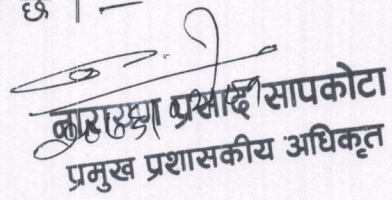 छ ।
प्रसाद सापकोटा
प्रमुख प्रशासकीय अधिकृत